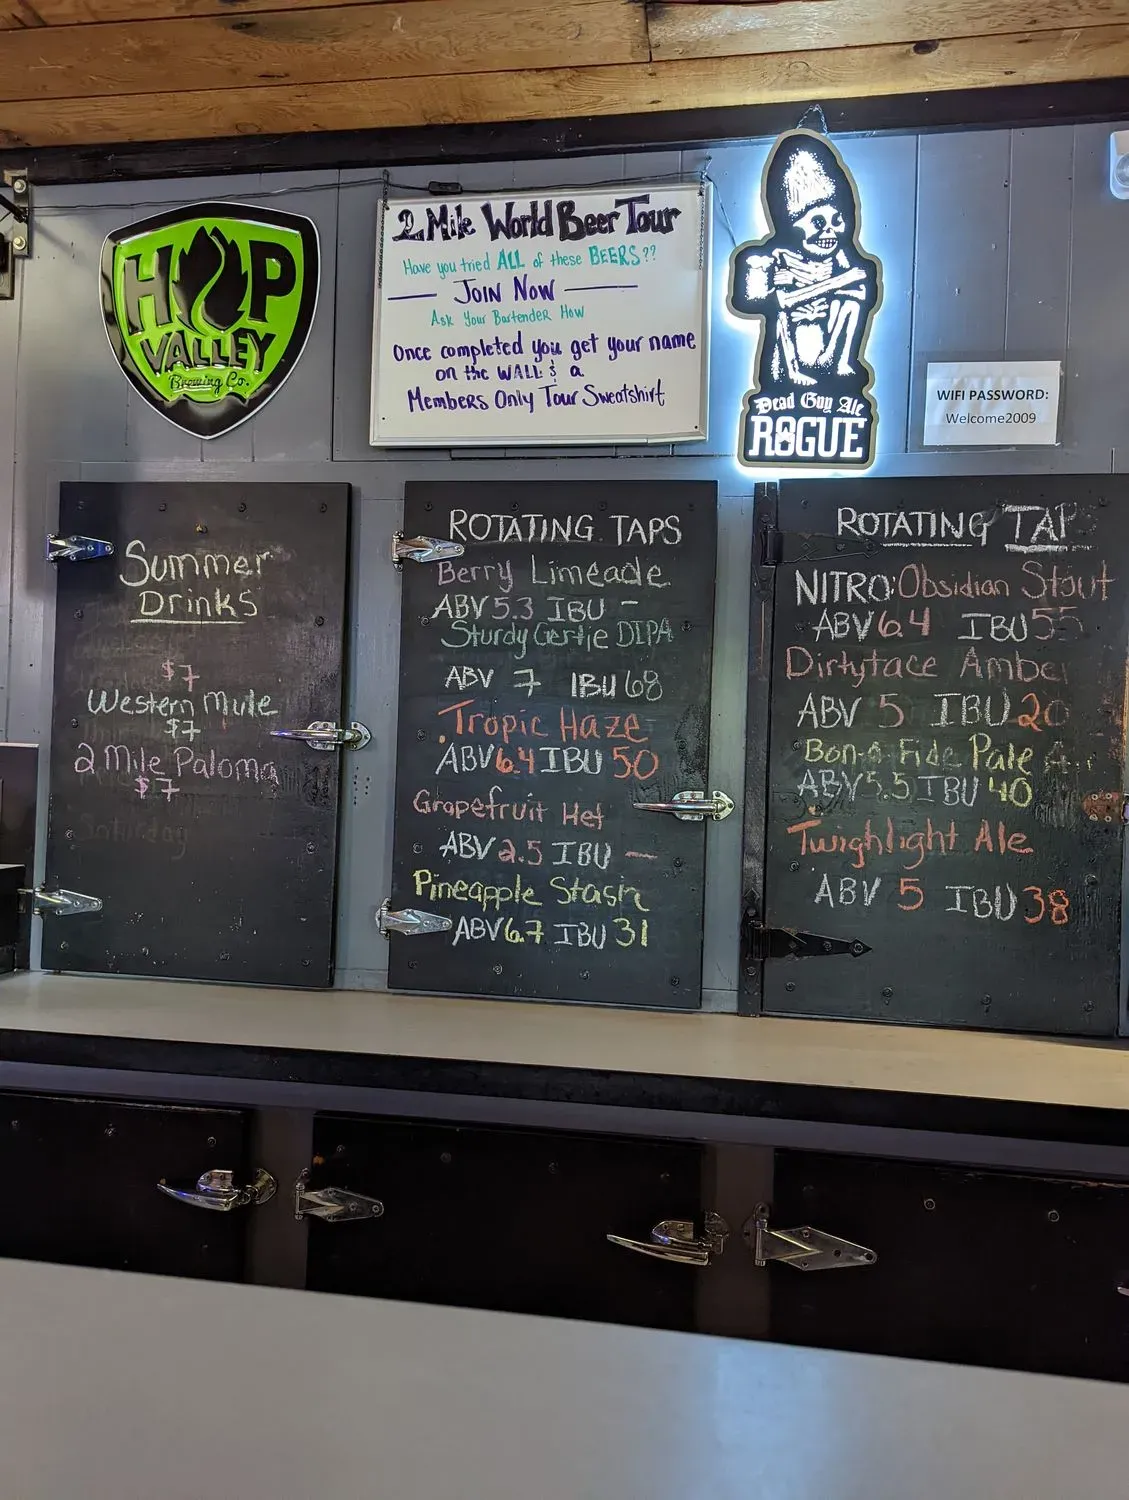 HOP
VALLEY
Brewing Co.
2 Mile World Beer Tour
Have you tried ALL of these BEERS??
JOIN NOW
Ask Your Bartender How
Once completed you get your name
on the WALL & a
Members Only Tour Sweatshirt
Dead Guy Ale
ROGUE
WIFI PASSWORD:
Welcome2009
Summer
Drinks
$7
Western Mule
$7
2 Mile Paloma
$7
Saturday
ROTATING TAPS
Berry Limeade
ABV 5.3 IBU -
Sturdy Gertie DIPA
ABV 7 IBU 68
Tropic Haze
ABV 6.4 IBU 50
Grapefruit Hef
ABV 2.5 IBU —
Pineapple Stash
ABV 6.7 IBU 31
ROTATING TAPS
NITRO: Obsidian Stout
ABV 6.4 IBU 55
Dirtyface Amber
ABV 5 IBU 20
Bon-a Fide Pale
ABV 5.5 IBU 40
Twighlight Ale
ABV 5 IBU 38